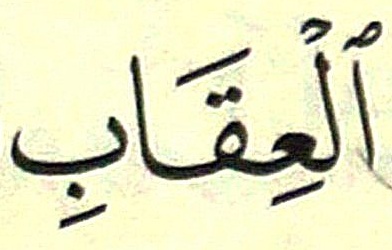 ٱلْعِقَابِ